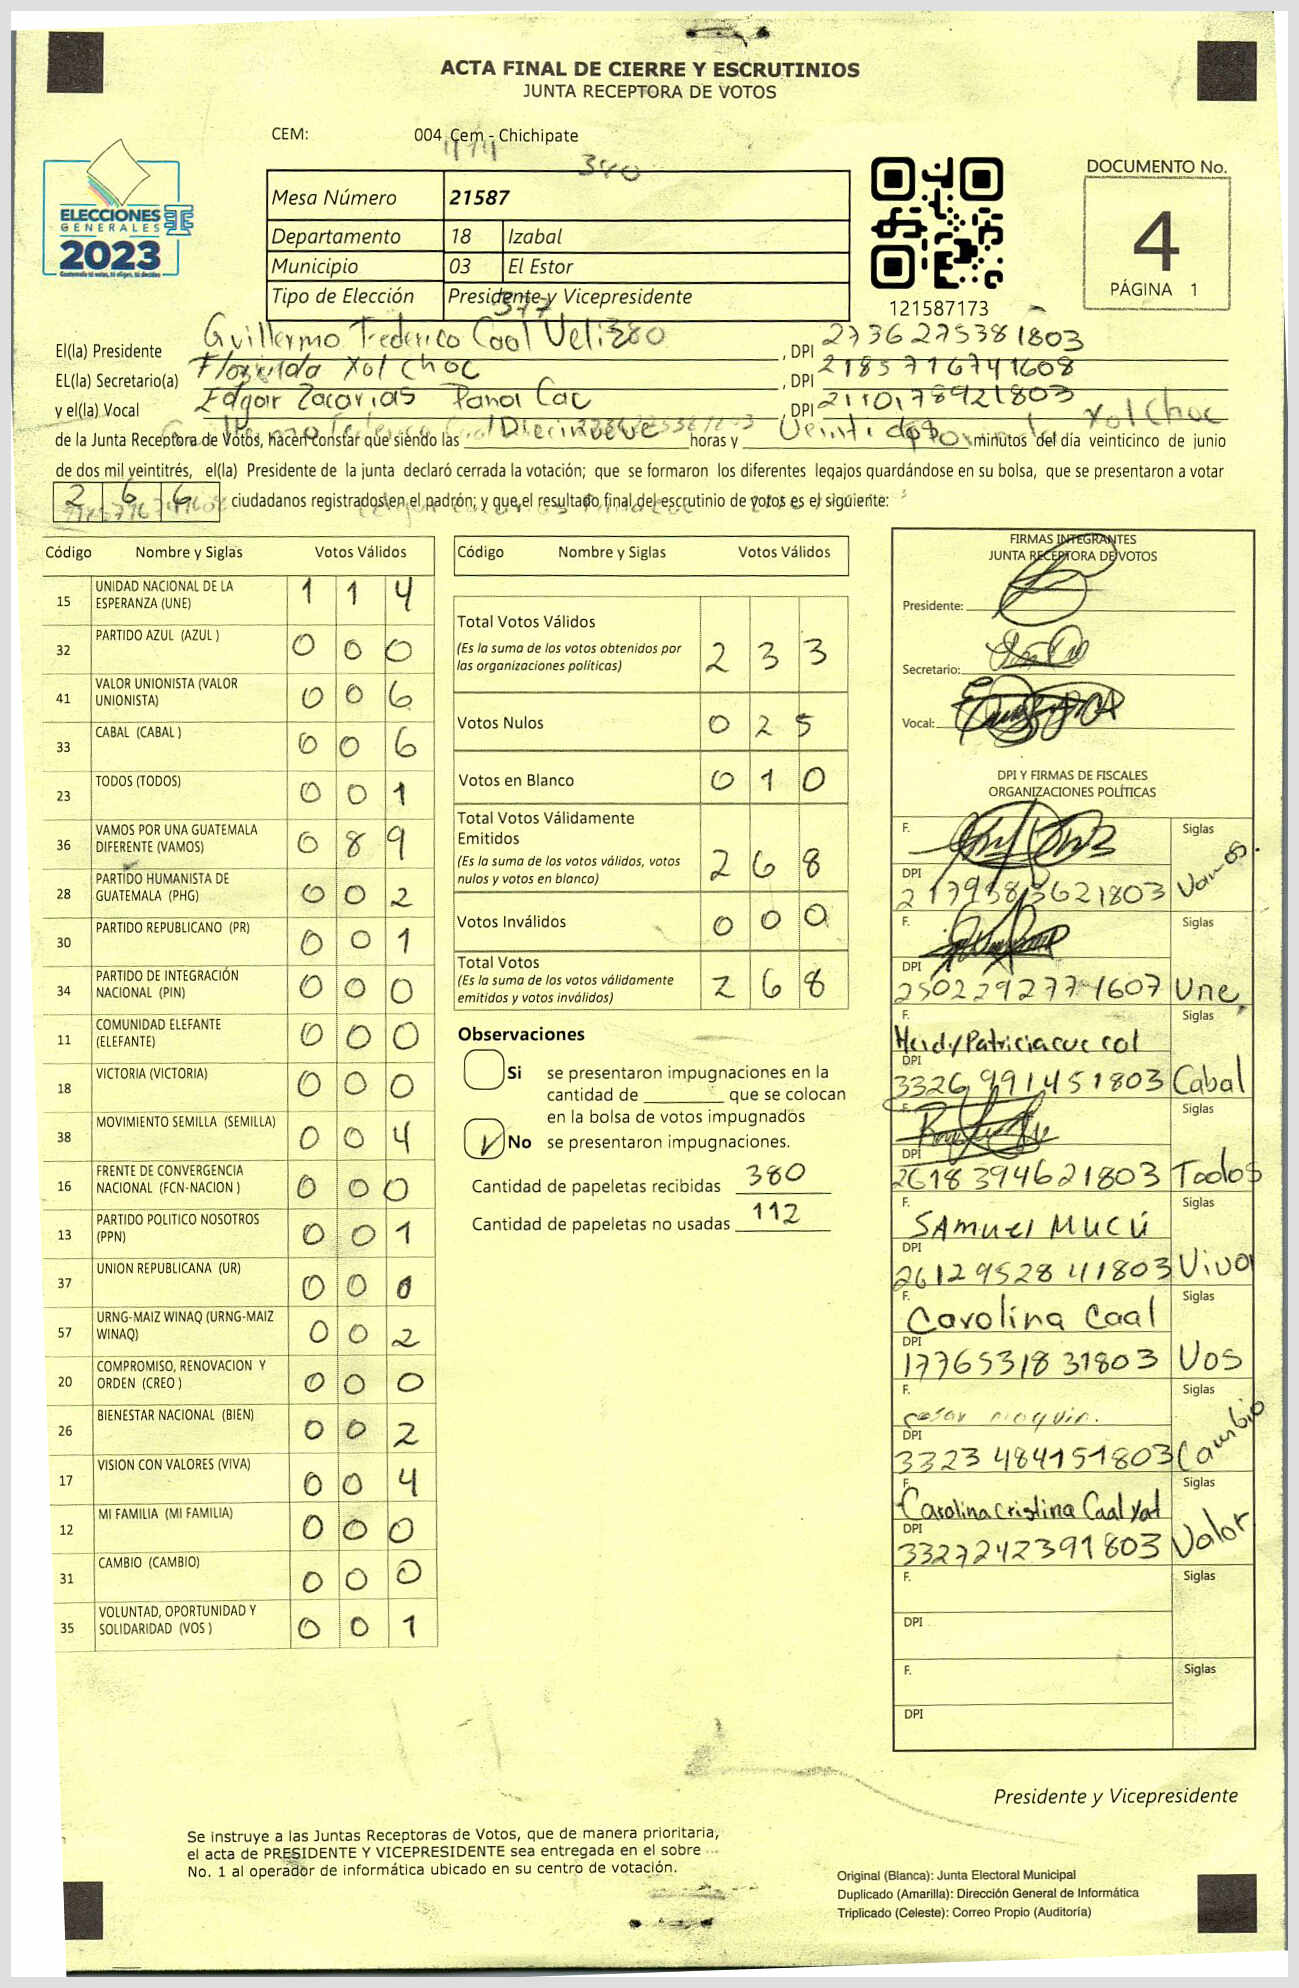 ACTA FINAL DE CIERRE Y ESCRUTINIOS
JUNTA RECEPTORA DE VOTOS
CEM: 004 Cem - Chichipate
340
ELECCIONES
GENERALES
2023
Mesa Número 21587
Departamento 18 Izabal
Municipio 03 El Estor
Tipo de Elección Presidente y Vicepresidente
377
121587173
DOCUMENTO No.
4
PÁGINA 1
El(la) Presidente Guillermo Federico Caal Veliz , DPI 2736275381803
EL(la) Secretario(a) Florinda Xol Choc , DPI 2185716741608
y el(la) Vocal Edgar Zacarias Pana Cac , DPI 2110178921803
Xol Choc
de la Junta Receptora de Votos, hacen constar que siendo las Diecinueve horas y Veintidos minutos del día veinticinco de junio
de dos mil veintitrés, el(la) Presidente de la junta declaró cerrada la votación; que se formaron los diferentes legajos guardándose en su bolsa, que se presentaron a votar
2 6 6 ciudadanos registrados en el padrón; y que el resultado final del escrutinio de votos es el siguiente:
Código Nombre y Siglas Votos Válidos
15 UNIDAD NACIONAL DE LA ESPERANZA (UNE) 1 1 4
32 PARTIDO AZUL (AZUL ) 0 0 0
41 VALOR UNIONISTA (VALOR UNIONISTA) 0 0 6
33 CABAL (CABAL ) 0 0 6
23 TODOS (TODOS) 0 0 1
36 VAMOS POR UNA GUATEMALA DIFERENTE (VAMOS) 0 8 9
28 PARTIDO HUMANISTA DE GUATEMALA (PHG) 0 0 2
30 PARTIDO REPUBLICANO (PR) 0 0 1
34 PARTIDO DE INTEGRACIÓN NACIONAL (PIN) 0 0 0
11 COMUNIDAD ELEFANTE (ELEFANTE) 0 0 0
18 VICTORIA (VICTORIA) 0 0 0
38 MOVIMIENTO SEMILLA (SEMILLA) 0 0 4
16 FRENTE DE CONVERGENCIA NACIONAL (FCN-NACION ) 0 0 0
13 PARTIDO POLITICO NOSOTROS (PPN) 0 0 1
37 UNION REPUBLICANA (UR) 0 0 0
57 URNG-MAIZ WINAQ (URNG-MAIZ WINAQ) 0 0 2
20 COMPROMISO, RENOVACION Y ORDEN (CREO ) 0 0 0
26 BIENESTAR NACIONAL (BIEN) 0 0 2
17 VISION CON VALORES (VIVA) 0 0 4
12 MI FAMILIA (MI FAMILIA) 0 0 0
31 CAMBIO (CAMBIO) 0 0 0
35 VOLUNTAD, OPORTUNIDAD Y SOLIDARIDAD (VOS ) 0 0 1
Código Nombre y Siglas Votos Válidos
Total Votos Válidos
(Es la suma de los votos obtenidos por las organizaciones políticas) 2 3 3
Votos Nulos 0 2 5
Votos en Blanco 0 1 0
Total Votos Válidamente Emitidos
(Es la suma de los votos válidos, votos nulos y votos en blanco) 2 6 8
Votos Inválidos 0 0 0
Total Votos
(Es la suma de los votos válidamente emitidos y votos inválidos) 2 6 8
Observaciones
Si se presentaron impugnaciones en la
cantidad de ________ que se colocan
en la bolsa de votos impugnados
No se presentaron impugnaciones.
Cantidad de papeletas recibidas 380
Cantidad de papeletas no usadas 112
FIRMAS INTEGRANTES
JUNTA RECEPTORA DE VOTOS
Presidente:
Secretario:
Vocal:
DPI Y FIRMAS DE FISCALES
ORGANIZACIONES POLÍTICAS
F. Siglas
DPI 2179583621803 Vamos.
F. Siglas
DPI 2502292771607 Une.
F. Heidy Patricia cuc col Siglas
DPI 3326991451803 Cabal
F. Siglas
DPI 2618394621803 Todos
F. SAmuel Mucú Siglas
DPI 2612952841803 Viva
F. Carolina Caal Siglas
DPI 1776531831803 Vos
F. cesar maquin. Siglas
DPI 3323484151803 Cambio
F. Carolina Cristina Caal Xol Siglas
DPI 3327242391803 Valor
F. Siglas
DPI
F. Siglas
DPI
Presidente y Vicepresidente
Se instruye a las Juntas Receptoras de Votos, que de manera prioritaria,
el acta de PRESIDENTE Y VICEPRESIDENTE sea entregada en el sobre
No. 1 al operador de informática ubicado en su centro de votación.
Original (Blanca): Junta Electoral Municipal
Duplicado (Amarilla): Dirección General de Informática
Triplicado (Celeste): Correo Propio (Auditoría)